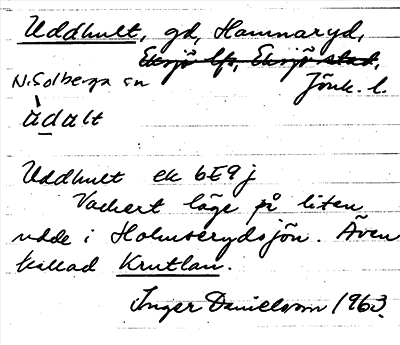 Uddhult, gd, Hamnaryd,
Eksjö lfs, Eksjö stad,
N. Solberga sn Jönk. l.
ùdalt
Uddhult ek 6E9j
Vackert läge på liten
udde i Holmserydsjön. Även
kallad Krutlan.
Inger Danielsson 1963